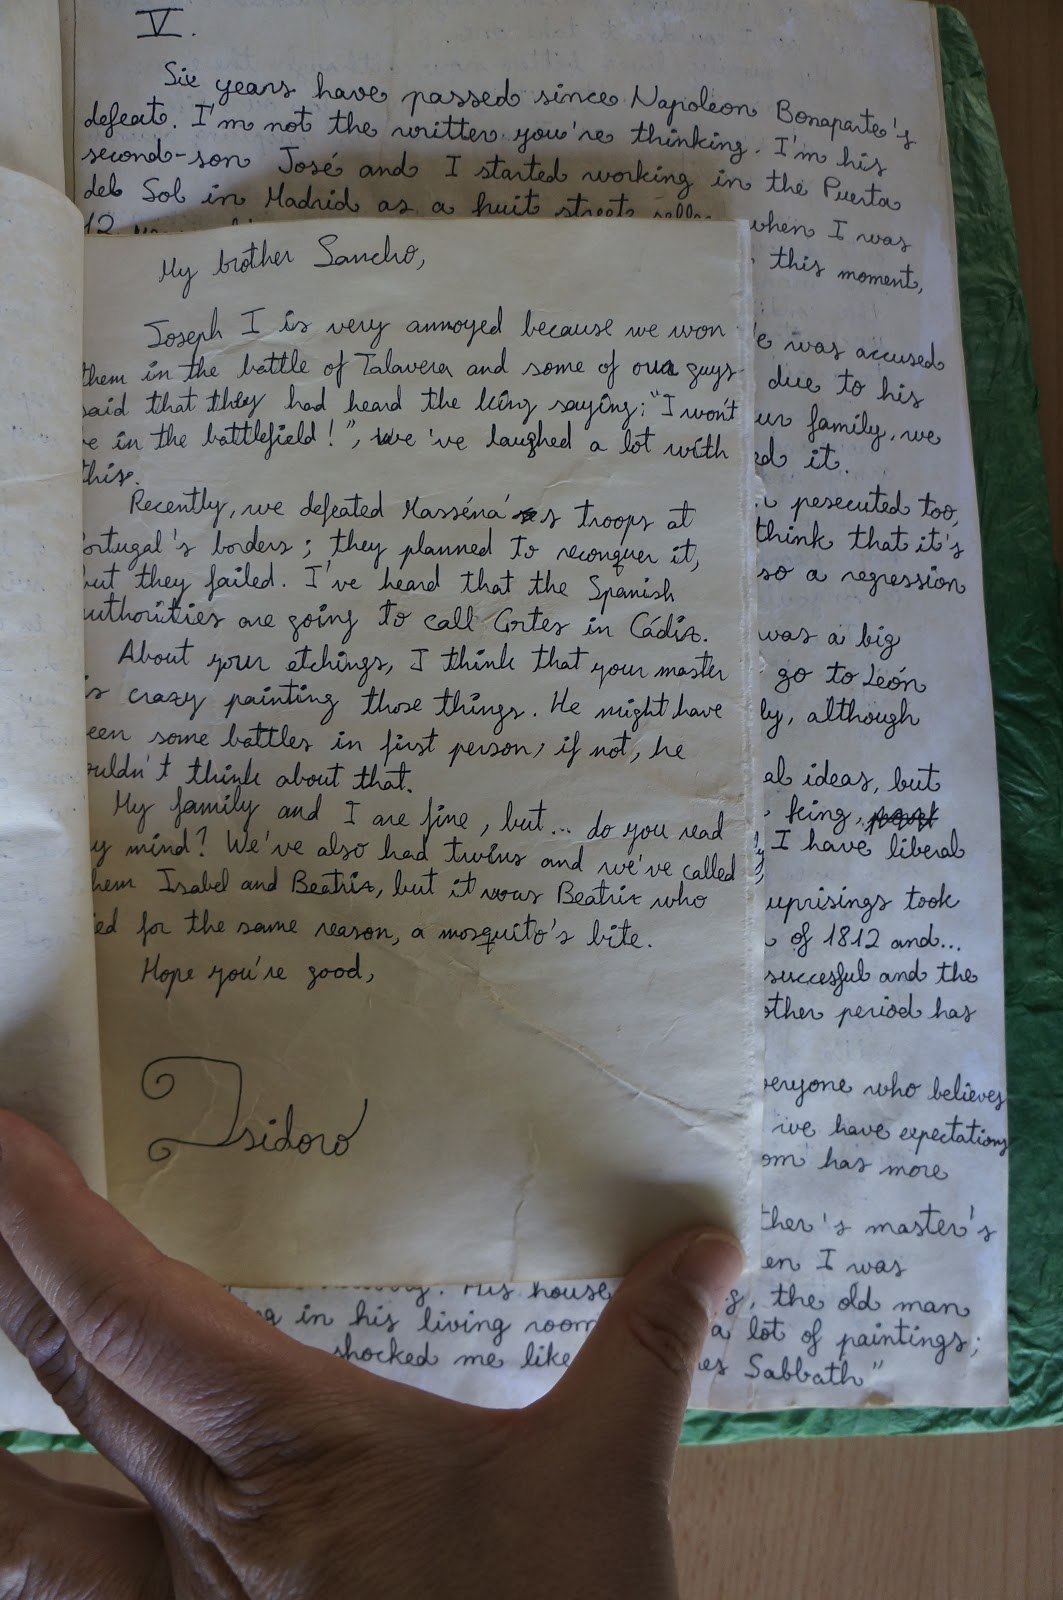 V.
Six years have passed since Napoleon Bonaparte's
defeat. I'm not the writter you're thinking. I'm his
second-son José and I started working in the Puerta
del Sol in Madrid as a fruit street
12 when I was
this moment,
My brother Sancho,
Joseph I is very annoyed because we won
them in the battle of Talavera and some of our guys
said that they had heard the king saying: "I won't
in the battlefield!", we've laughed a lot with
this.
Recently, we defeated Masséna's troops at
Portugal's borders; they planned to reconquer it,
but they failed. I've heard that the Spanish
authorities are going to call Cortes in Cádiz.
About your etchings, I think that your master
is crazy painting those things. He might have
seen some battles in first person; if not, he
couldn't think about that.
My family and I are fine, but... do you read
my mind? We've also had twins and we've called
them Isabel and Beatriz, but it was Beatriz who
died for the same reason, a mosquito's bite.
Hope you're good,
Isidoro
was accused
due to his
our family, we
it.
pesecuted too,
think that it's
so a regression
was a big
go to León
although
ideas, but
king,
I have liberal
uprisings took
of 1812 and...
succesful and the
other period has
everyone who believes
we have expectations
has more
master's
I was
His house the old man
in his living room a lot of paintings;
shocked me like Sabbath"